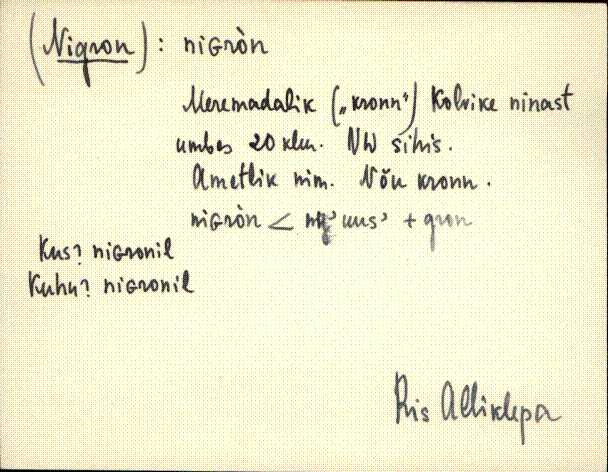 (Nigron) : niGròn
Meremadalik („kronn") Kolvike ninast
umbes 20 klm. NW sihis.
Ametlik nim. Nõu kronn.
niGròn < uus' + gron
Kus? niGronil
Kuhu? niGronil
Ris Alliklepa